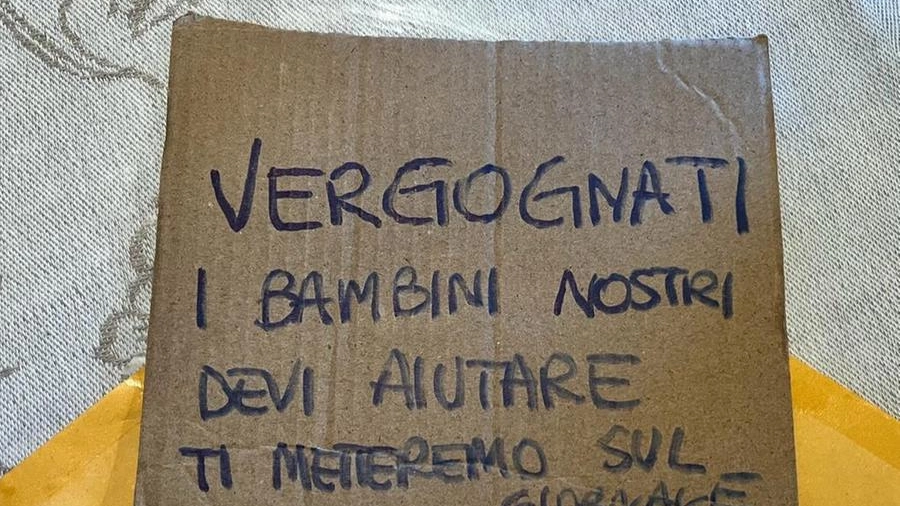 VERGOGNATI
I BAMBINI NOSTRI
DEVI AIUTARE
TI METTEREMO SUL